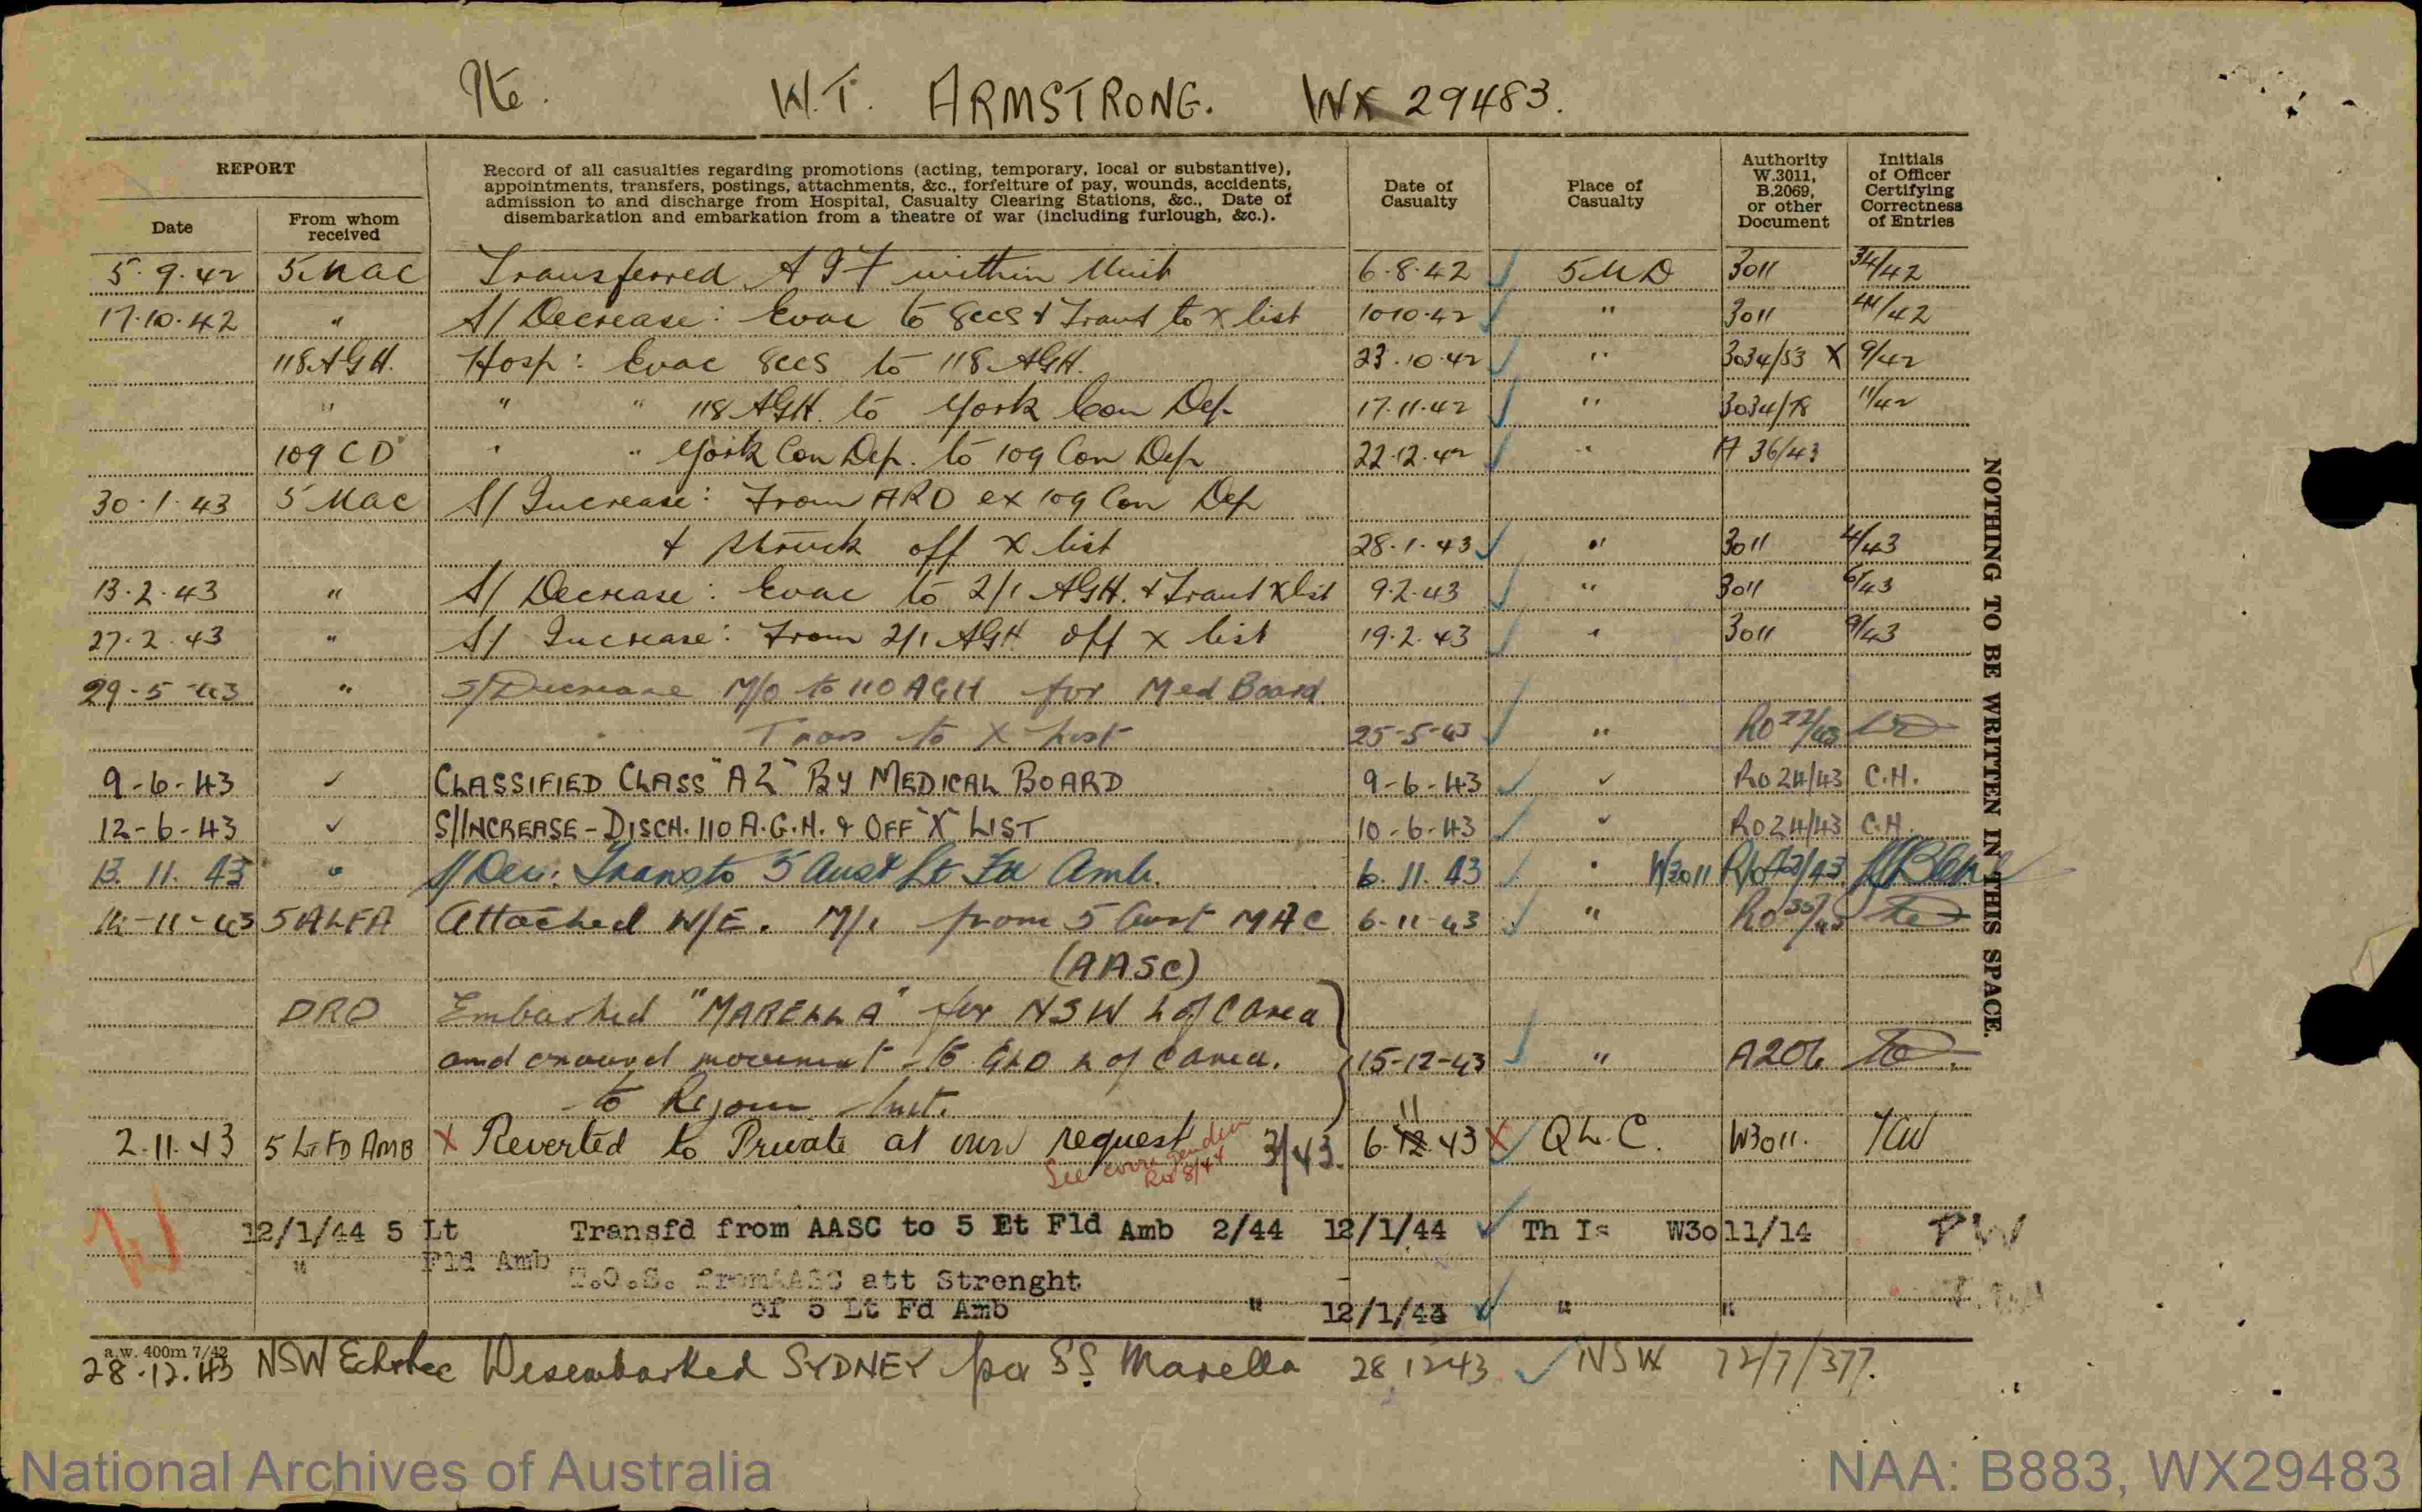 Pte. W.T. ARMSTRONG. WX 29483.
REPORT
Date
From whom received
Record of all casualties regarding promotions (acting, temporary, local or substantive),
appointments, transfers, postings, attachments, &c., forfeiture of pay, wounds, accidents,
admission to and discharge from Hospital, Casualty Clearing Stations, &c., Date of
disembarkation and embarkation from a theatre of war (including furlough, &c.).
Date of Casualty
Place of Casualty
Authority W.3011, B.2069, or other Document
Initials of Officer Certifying Correctness of Entries
5.9.42 5 MAC Transferred AIF within Unit 6.8.42 5 M D 3011 34/42
17.10.42 " S/ Decrease: Evac to 8CCS & Transf to X list 10.10.42 " 3011 41/42
118 AGH. Hosp: Evac 8CCS to 118 AGH. 23.10.42 " 3034/53 X 9/42
" " " 118 AGH. to York Con Dep 17.11.42 " 3034/78 11/42
109 CD " " York Con Dep. to 109 Con Dep 22.12.42 " A 36/43
30.1.43 5 MAC S/ Increase: From ARD ex 109 Con Dep
& struck off X list 28.1.43 " 3011 4/43
13.2.43 " S/ Decrease: Evac to 2/1 AGH. & Transf X list 9.2.43 " 3011 6/43
27.2.43 " S/ Increase: From 2/1 AGH off X list 19.2.43 " 3011 9/43
29-5-43 " S/Decrease M/O to 110 AGH for Med Board
Trans to X list 25-5-43 " RO 22/43
9-6-43 ✓ CLASSIFIED CLASS "A2" BY MEDICAL BOARD 9-6-43 ✓ RO 24/43 C.H.
12-6-43 ✓ S/INCREASE - DISCH. 110 A.G.H. & OFF "X" LIST 10-6-43 ✓ RO 24/43 C.H.
13.11.43 " S/Dec: Trans to 5 Aust Lt Fd Amb. 6.11.43 " W3011 RO
14-11-43 5 ALFA Attached W/E. M/I from 5 Aust MAC 6-11-43 " RO
(AASC)
DRO Embarked "MARELLA" for NSW L of C area
and onward movement to QLD L of C area. 15-12-43 " A206
to Rejoin Unit.
2.11.43 5 Lt FD AMB X Reverted to Private at own request 3/43. 6.12.43 11 X Q L. C. W3011.
See corrigendum
RO 8/44
12/1/44 5 Lt Transfd from AASC to 5 Et Fld Amb 2/44 12/1/44 Th Is W3011/14 PW
" Fld Amb T.O.S. from AASC att Strenght
of 5 Lt Fd Amb " 12/1/44 " "
a.w. 400m 7/42
28.12.43 NSW Echelon Disembarked SYDNEY per SS Marella 28 12 43 NSW 72/7/377.
NOTHING TO BE WRITTEN IN THIS SPACE.
National Archives of Australia
NAA: B883, WX29483